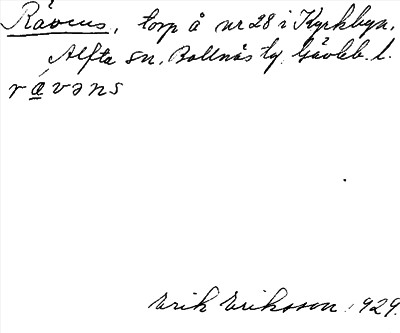 Råvens, torp å nr 28 i Kyrkbyn,
Alfta sn, Bollnäs tg, Gävleb. l.
råvəns
Erik Eriksson 1929.